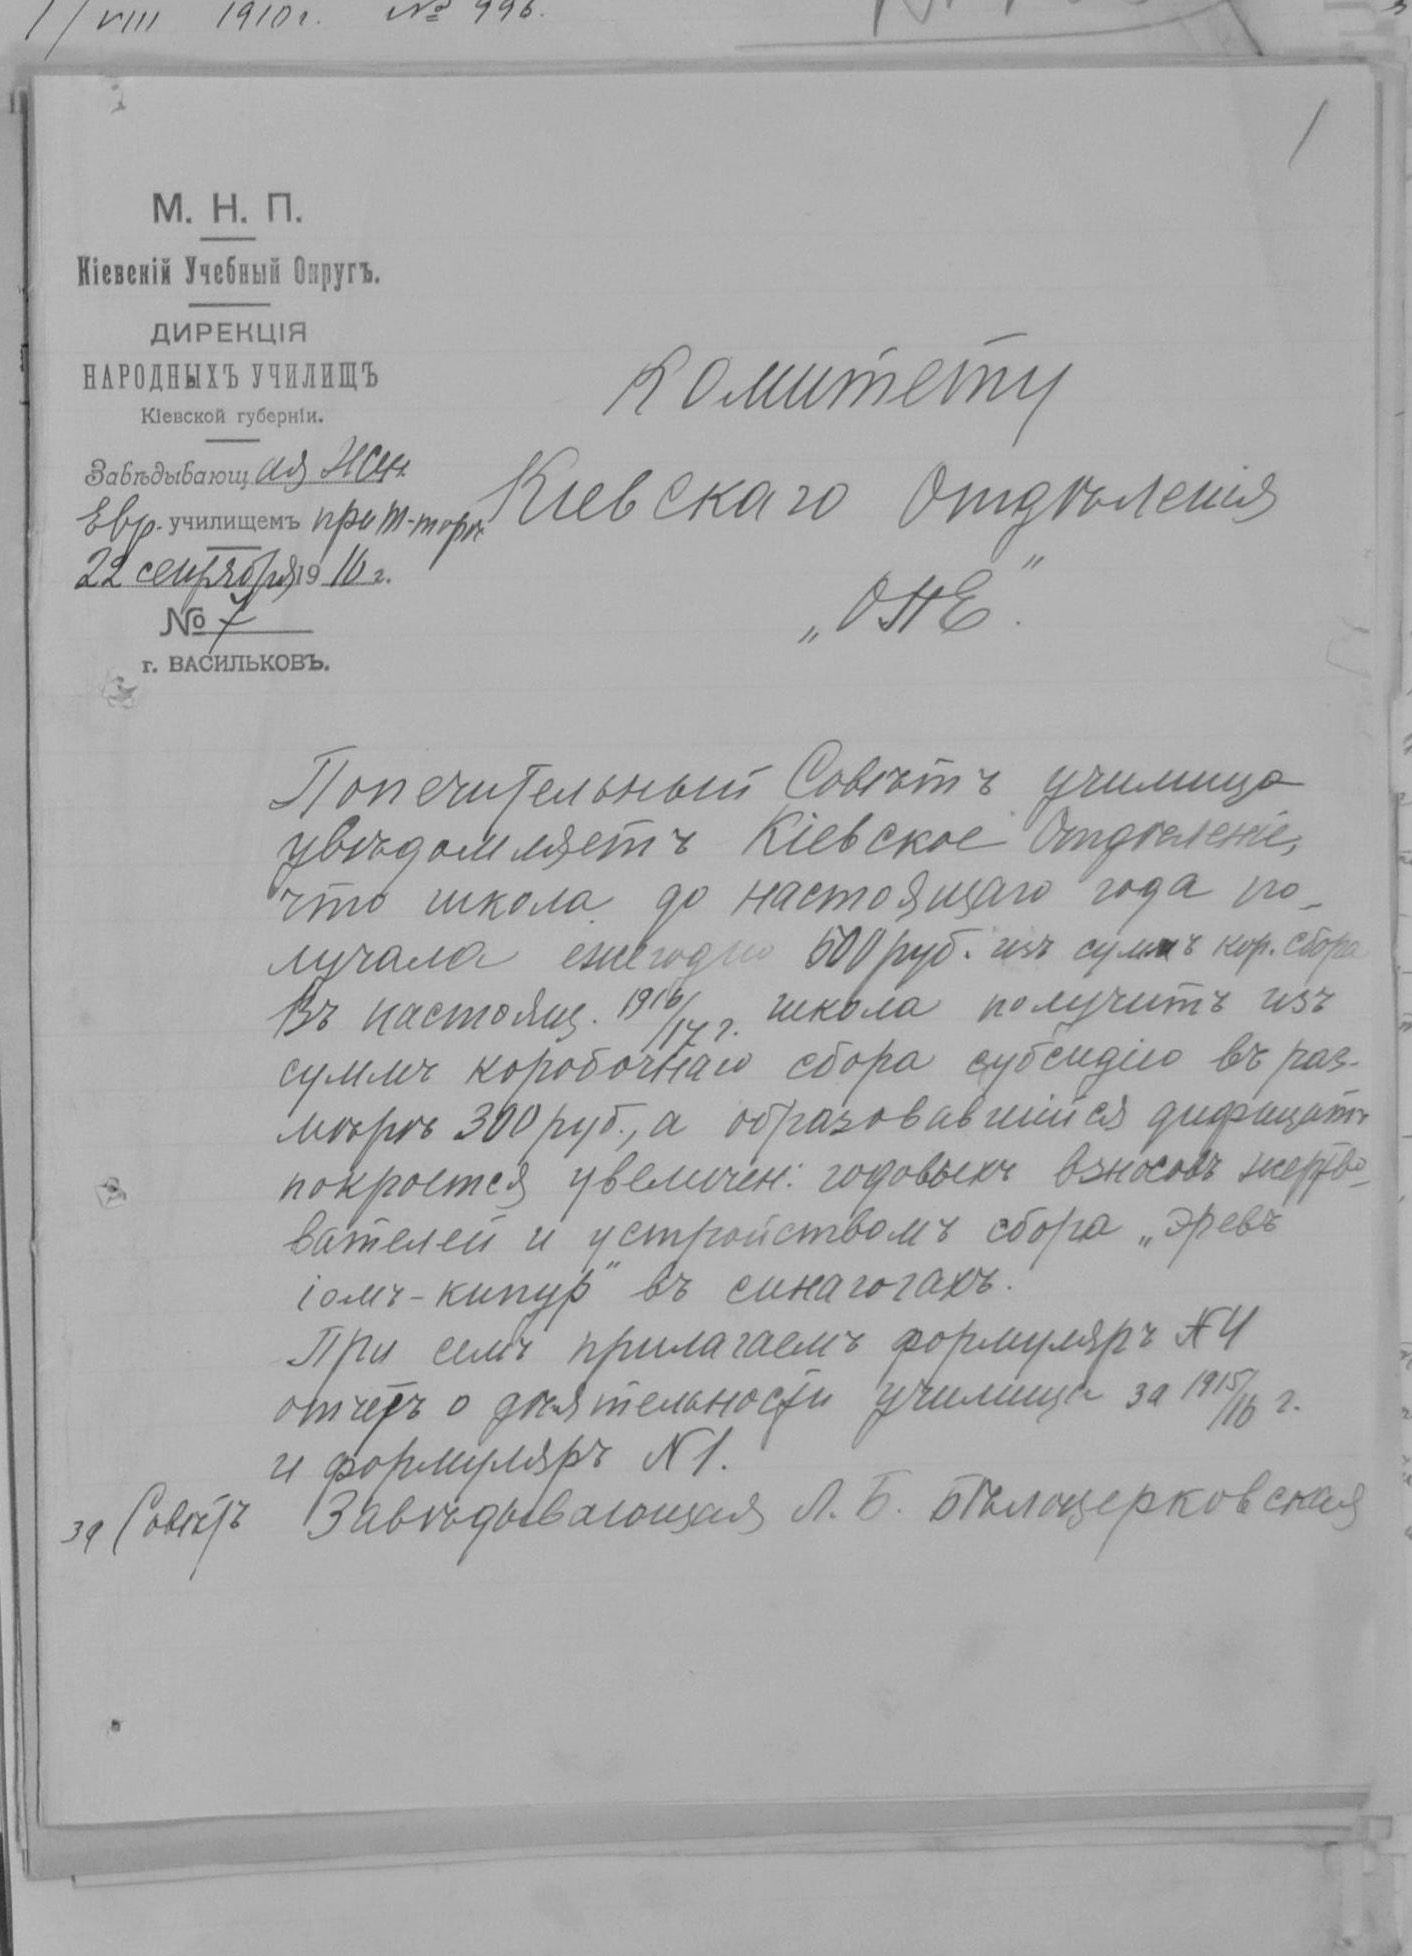 1/VIII 1910 г. № 996.
1
М. Н. П.
Кіевскій Учебный Округъ.
ДИРЕКЦІЯ
НАРОДНЫХЪ УЧИЛИЩЪ
Кіевской губерніи.
Завѣдывающая Жен.
Евр. училищемъ при т-торѣ
22 сентября 1916 г.
№ 7
г. ВАСИЛЬКОВЪ.
Комитету
Кіевскаго Отдѣленія
„ОПЕ".
Попечительный Совѣтъ училища
увѣдомляетъ Кіевское Отдѣленіе,
что школа до настоящаго года по-
лучала ежегодно 500 руб. изъ суммъ кор. сбора
Въ настоящ. 1916/17 г. школа получитъ изъ
суммъ коробочнаго сбора субсидію въ раз-
мѣрѣ 300 руб., а образовавшійся дифицитъ
покроется увеличен: годовыхъ взносовъ жертво-
вателей и устройствомъ сбора „Эревъ
іомъ-кипур" въ синагогахъ.
При семъ прилагаемъ формуляръ №4
отчетъ о дѣятельности училища за 1915/16 г.
и формуляръ N 1.
за Совѣтъ Завѣдывающая Л. Б. Бѣлоцерковская